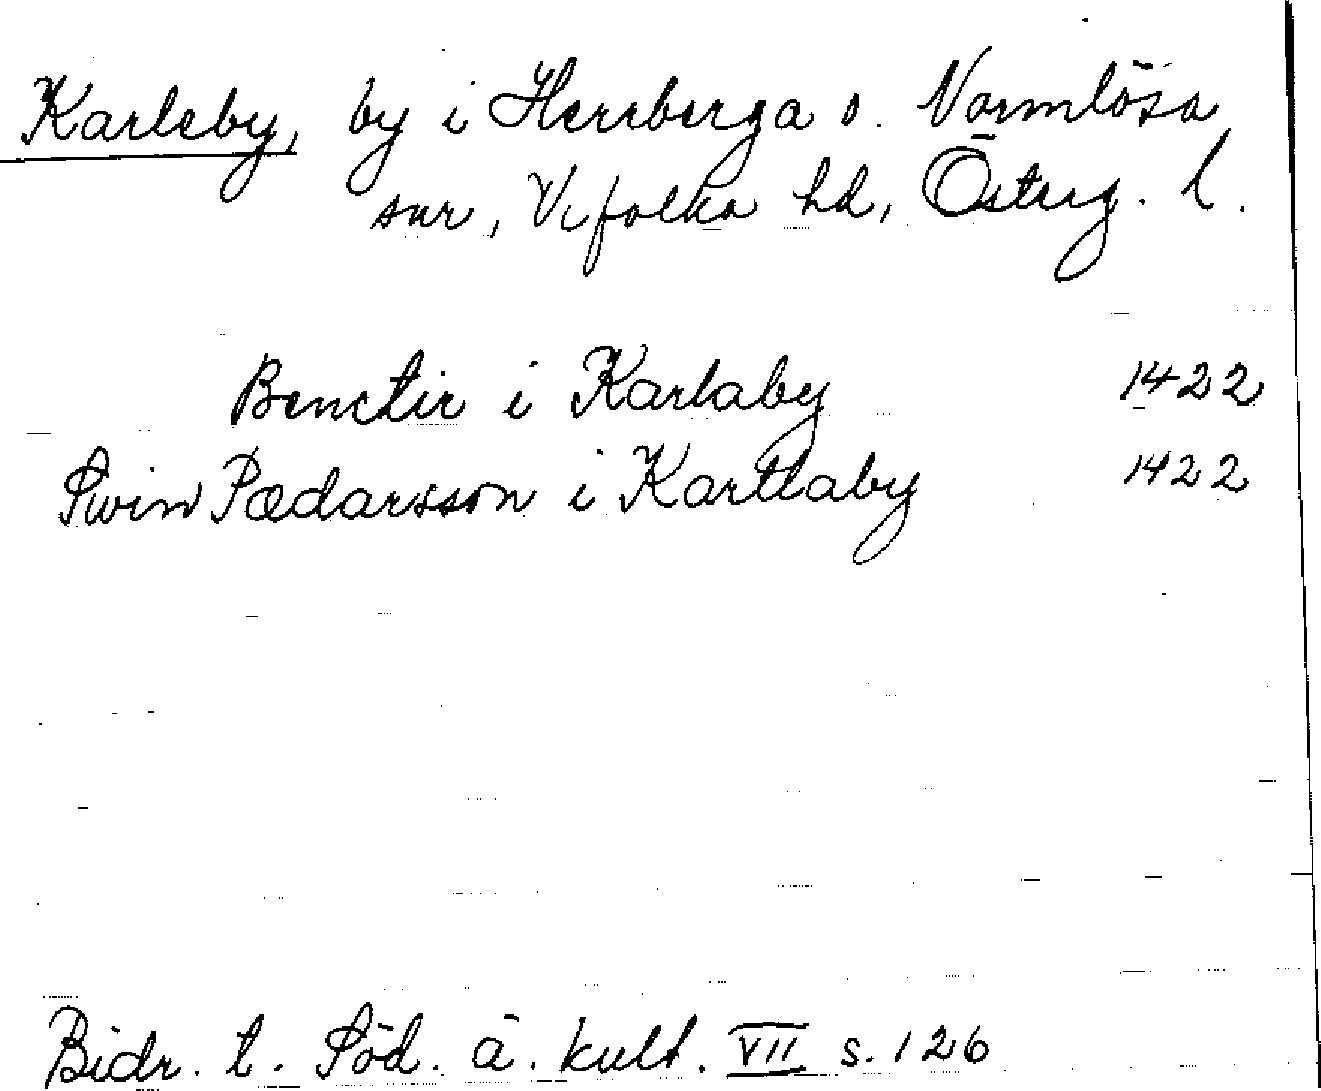 Karleby, by i Herrberga o. Normlösa
snr, Vifolka hd, Österg. l.
Benctir i Karlaby 1422
Swin Pædarsson i Kartlaby 1422
Bidr. t. Söd. ä. kult. VII s. 126